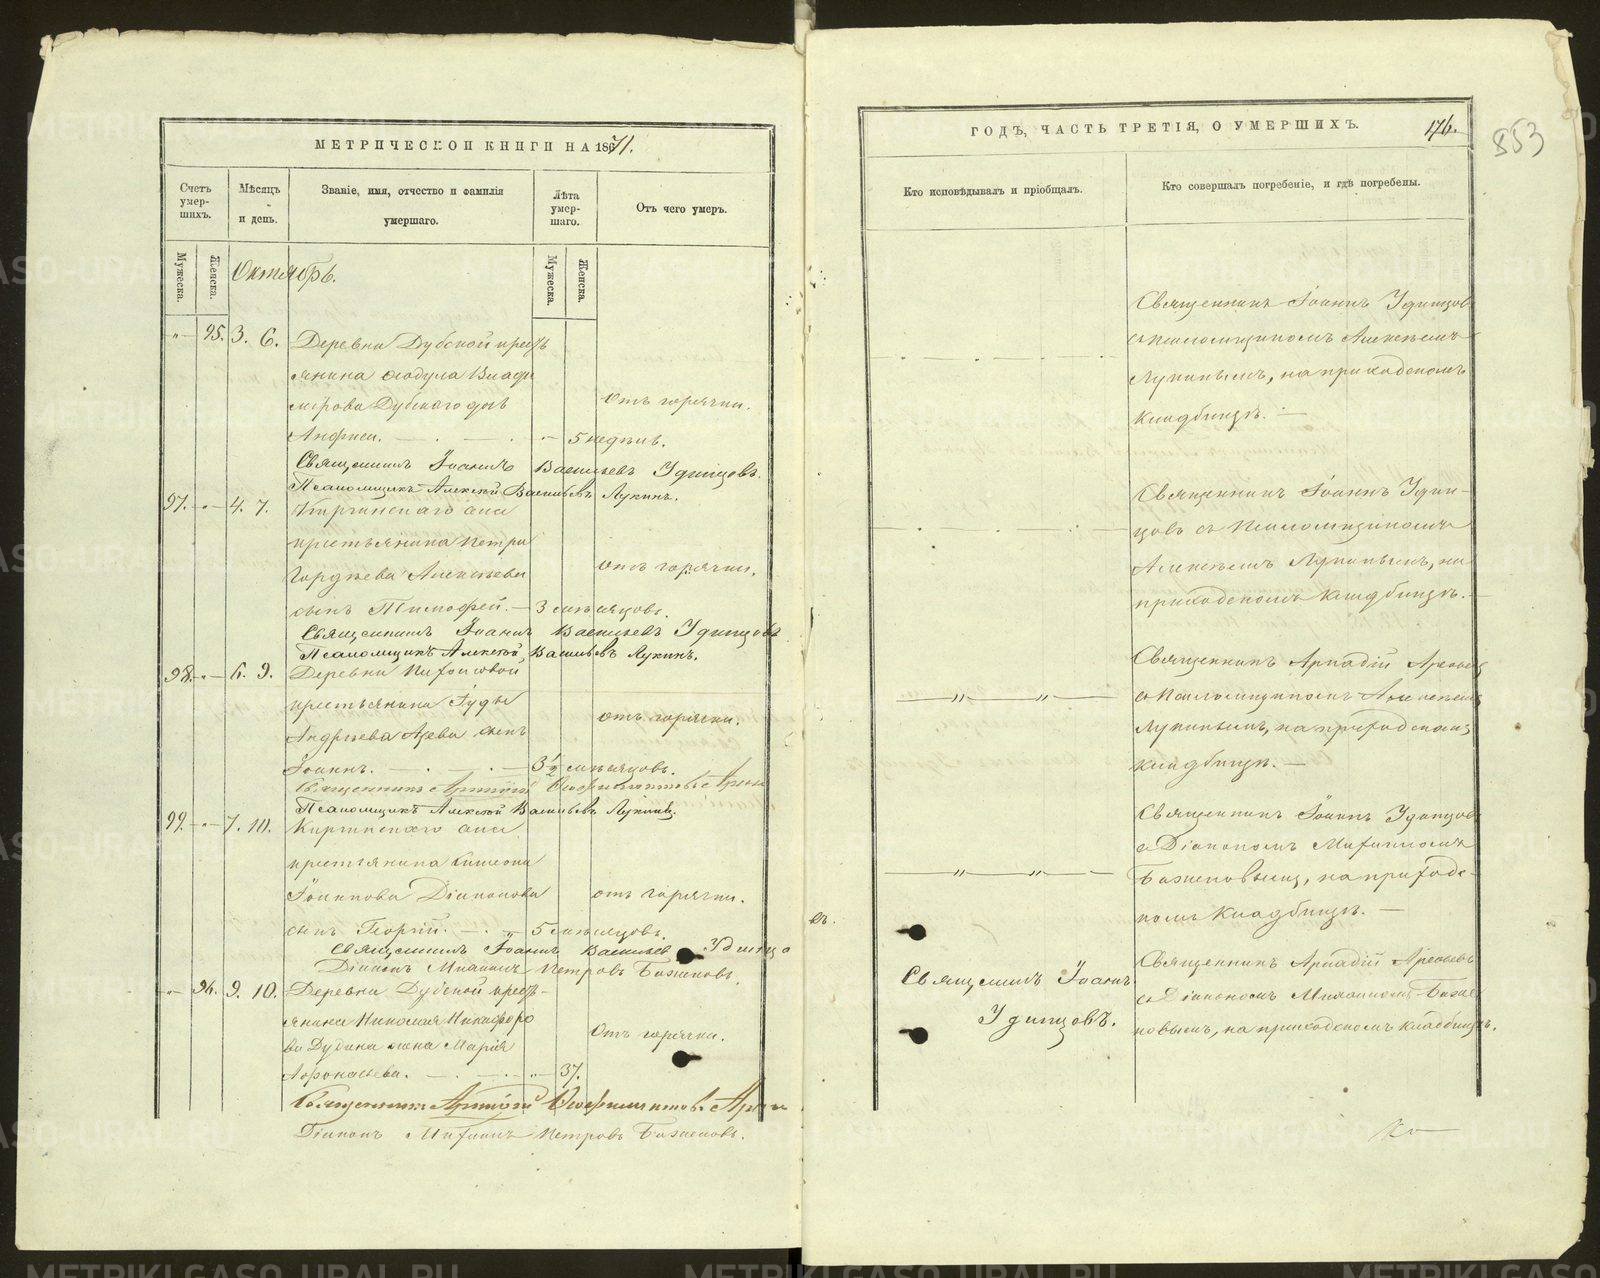 МЕТРИЧЕСКОЙ КНИГИ НА 1871.
Счетъ умер-шихъ.
Мужеска.
Женска.
Мѣсяцъ и день.
Званіе, имя, отчество и фамилія умершаго.
Лѣта умер-шаго.
Мужеска.
Женска.
Отъ чего умеръ.
Октябрь.
" — 95. 3. 6. Деревни Дубской кресть
янина Ѳеодула Влади
мірова Дубскаго дочь
Отъ горячки.
Анфиса. — " — 5 недѣль.
Священникъ Іоаннъ Васильевъ Удинцовъ.
Псаломщикъ Алексѣй Васильевъ Лукинъ.
97. " — 4. 7. Киргинскаго села
крестьянина Петра
Гордѣева Алексѣева
отъ горячки.
сынъ Тимофей. — 3 мѣсяцовъ.
Священникъ Іоаннъ Васильевъ Удинцовъ
Псаломщикъ Алексѣй Васильевъ Лукинъ.
98. " — 6. 9. Деревни
крестьянина Іуды
отъ горячки.
Андрѣева сынъ
Іоаннъ. — 3 1/2 мѣсяцовъ.
Священникъ Аркадій
Псаломщикъ Алексѣй Васильевъ Лукинъ.
99. " — 7. 10. Киргинскаго села
крестьянина Симеона
Іоаннова Діаконова
отъ горячки.
сынъ Георгій. — 5 мѣсяцовъ.
Священникъ Іоаннъ Васильев Удинцо
Діаконъ Михаилъ Петровъ Баженовъ.
" — 96. 9. 10. Деревни Дубской кресть-
янина Николая Никифоро
Отъ горячки.
ва Дубина жена Марія
Афонасьева. — " — 37.
Священникъ Аркадій
Діаконъ Михаилъ Петровъ Баженовъ.
ГОДЪ, ЧАСТЬ ТРЕТІЯ, О УМЕРШИХЪ.
176.
853
Кто исповѣдывалъ и пріобщалъ.
Кто совершалъ погребеніе, и гдѣ погребены.
Священникъ Іоаннъ Удинцовъ
съ псаломщикомъ Алексѣемъ
Лукинымъ, на приходскомъ
кладбищѣ. —
Священникъ Іоаннъ Удин-
цовъ съ псаломщикомъ
Алексѣемъ Лукинымъ, на
приходскомъ кладбищѣ. —
Священникъ Аркадій
— " — " —
съ псаломщикомъ Алексѣемъ
Лукинымъ, на приходскомъ
кладбищѣ. —
Священникъ Іоаннъ Удинцовъ
съ Діакономъ Михаиломъ
— " — " —
Баженовымъ, на приходс-
комъ кладбищѣ. —
въ.
Священникъ Аркадій
Священникъ Іоаннъ
съ Діакономъ Михаиломъ Баже
Удинцовъ.
новымъ, на приходскомъ кладбищѣ.